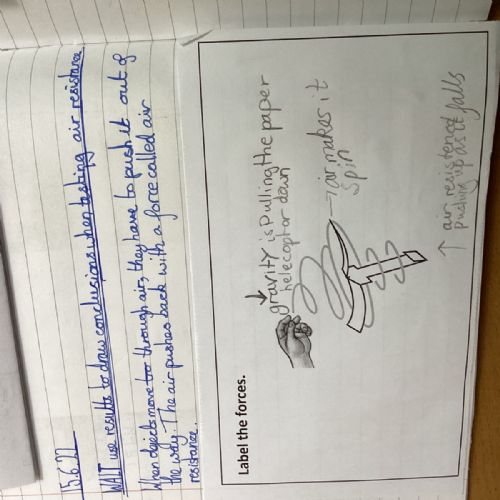 15.6.22
WALT use results to draw conclusions when testing air resistance
When objects move too through air, they have to push it out of
the way. The air pushes back with a force called air
resistance.
Label the forces.
↓
gravity is Pulling the paper
helecoptor down
→ air makes it
spin
↑ air resistened
pushing up as it falls